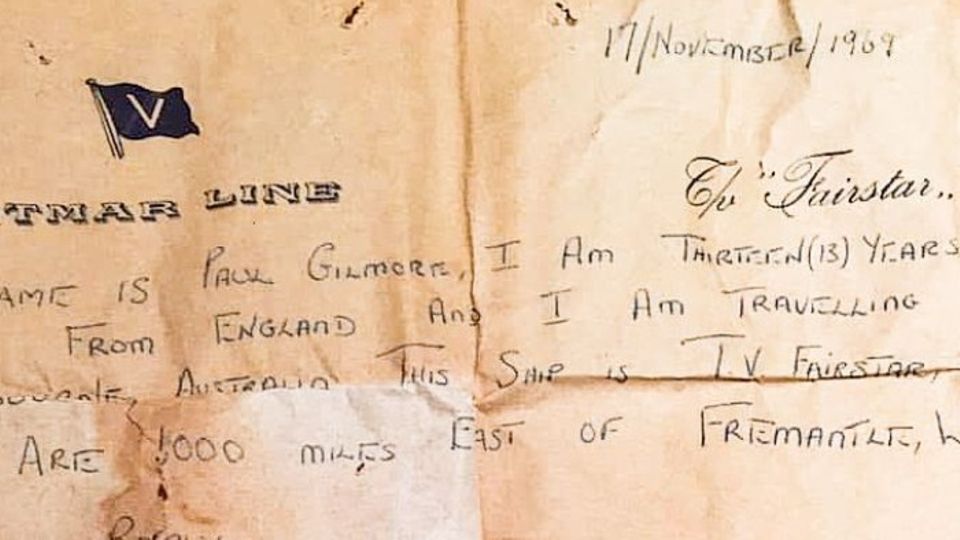 17/NOVEMBER/1969
V
TMAR LINE
T/v "Fairstar"
AME IS PAUL GILMORE, I AM THIRTEEN(13) YEARS
FROM ENGLAND AND I AM TRAVELLING
AUSTRALIA THIS SHIP IS T.V FAIRSTAR,
ARE 1000 MILES EAST OF FREMANTLE, W